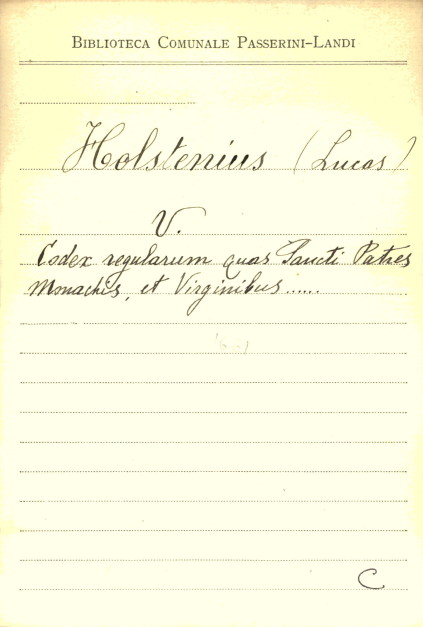 BIBLIOTECA COMUNALE PASSERINI-LANDI
Holstenius (Lucas)
V.
Codex regularum quas Sancti Patres
Monachis, et Virginibus......
C